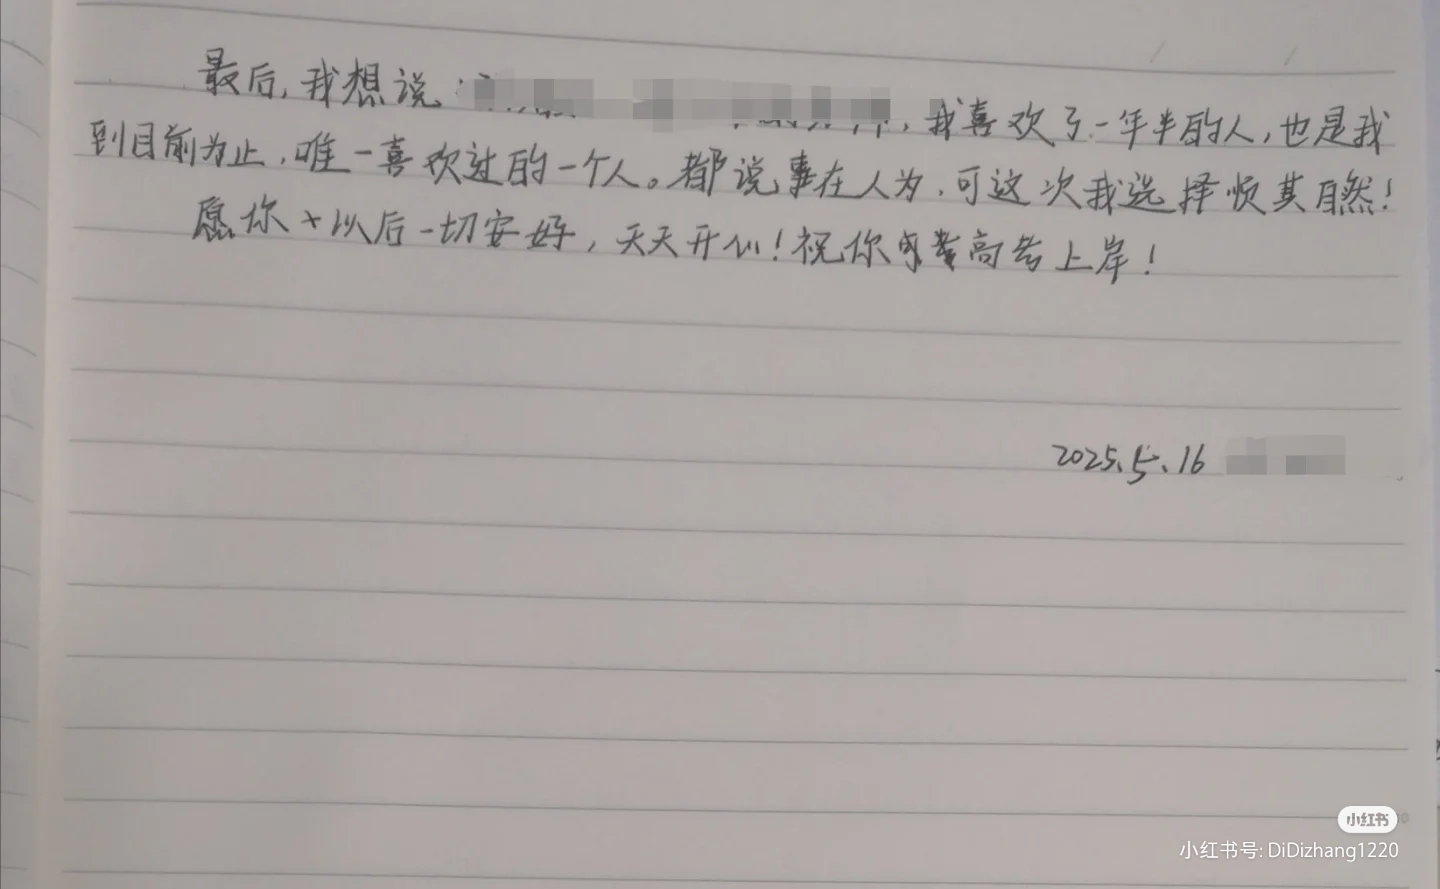 最后,我想说
,我喜欢了一年半的人,也是我
到目前为止,唯一喜欢过的一个人。都说事在人为,可这次我选择顺其自然!
愿你 以后一切安好,天天开心!祝你 高考上岸!
2025.5.16
小红书
小红书号: DiDizhang1220